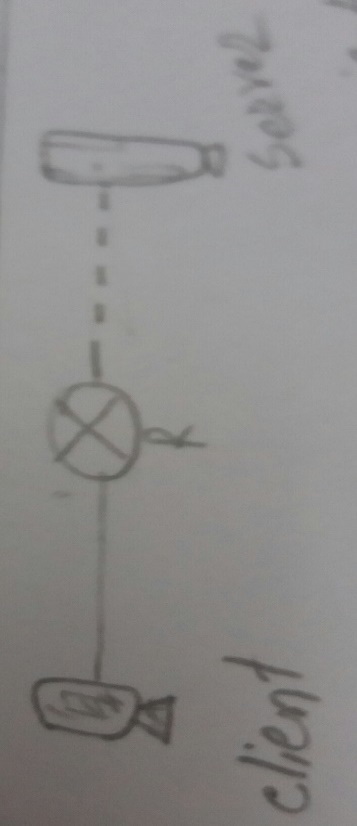 client
R
Server